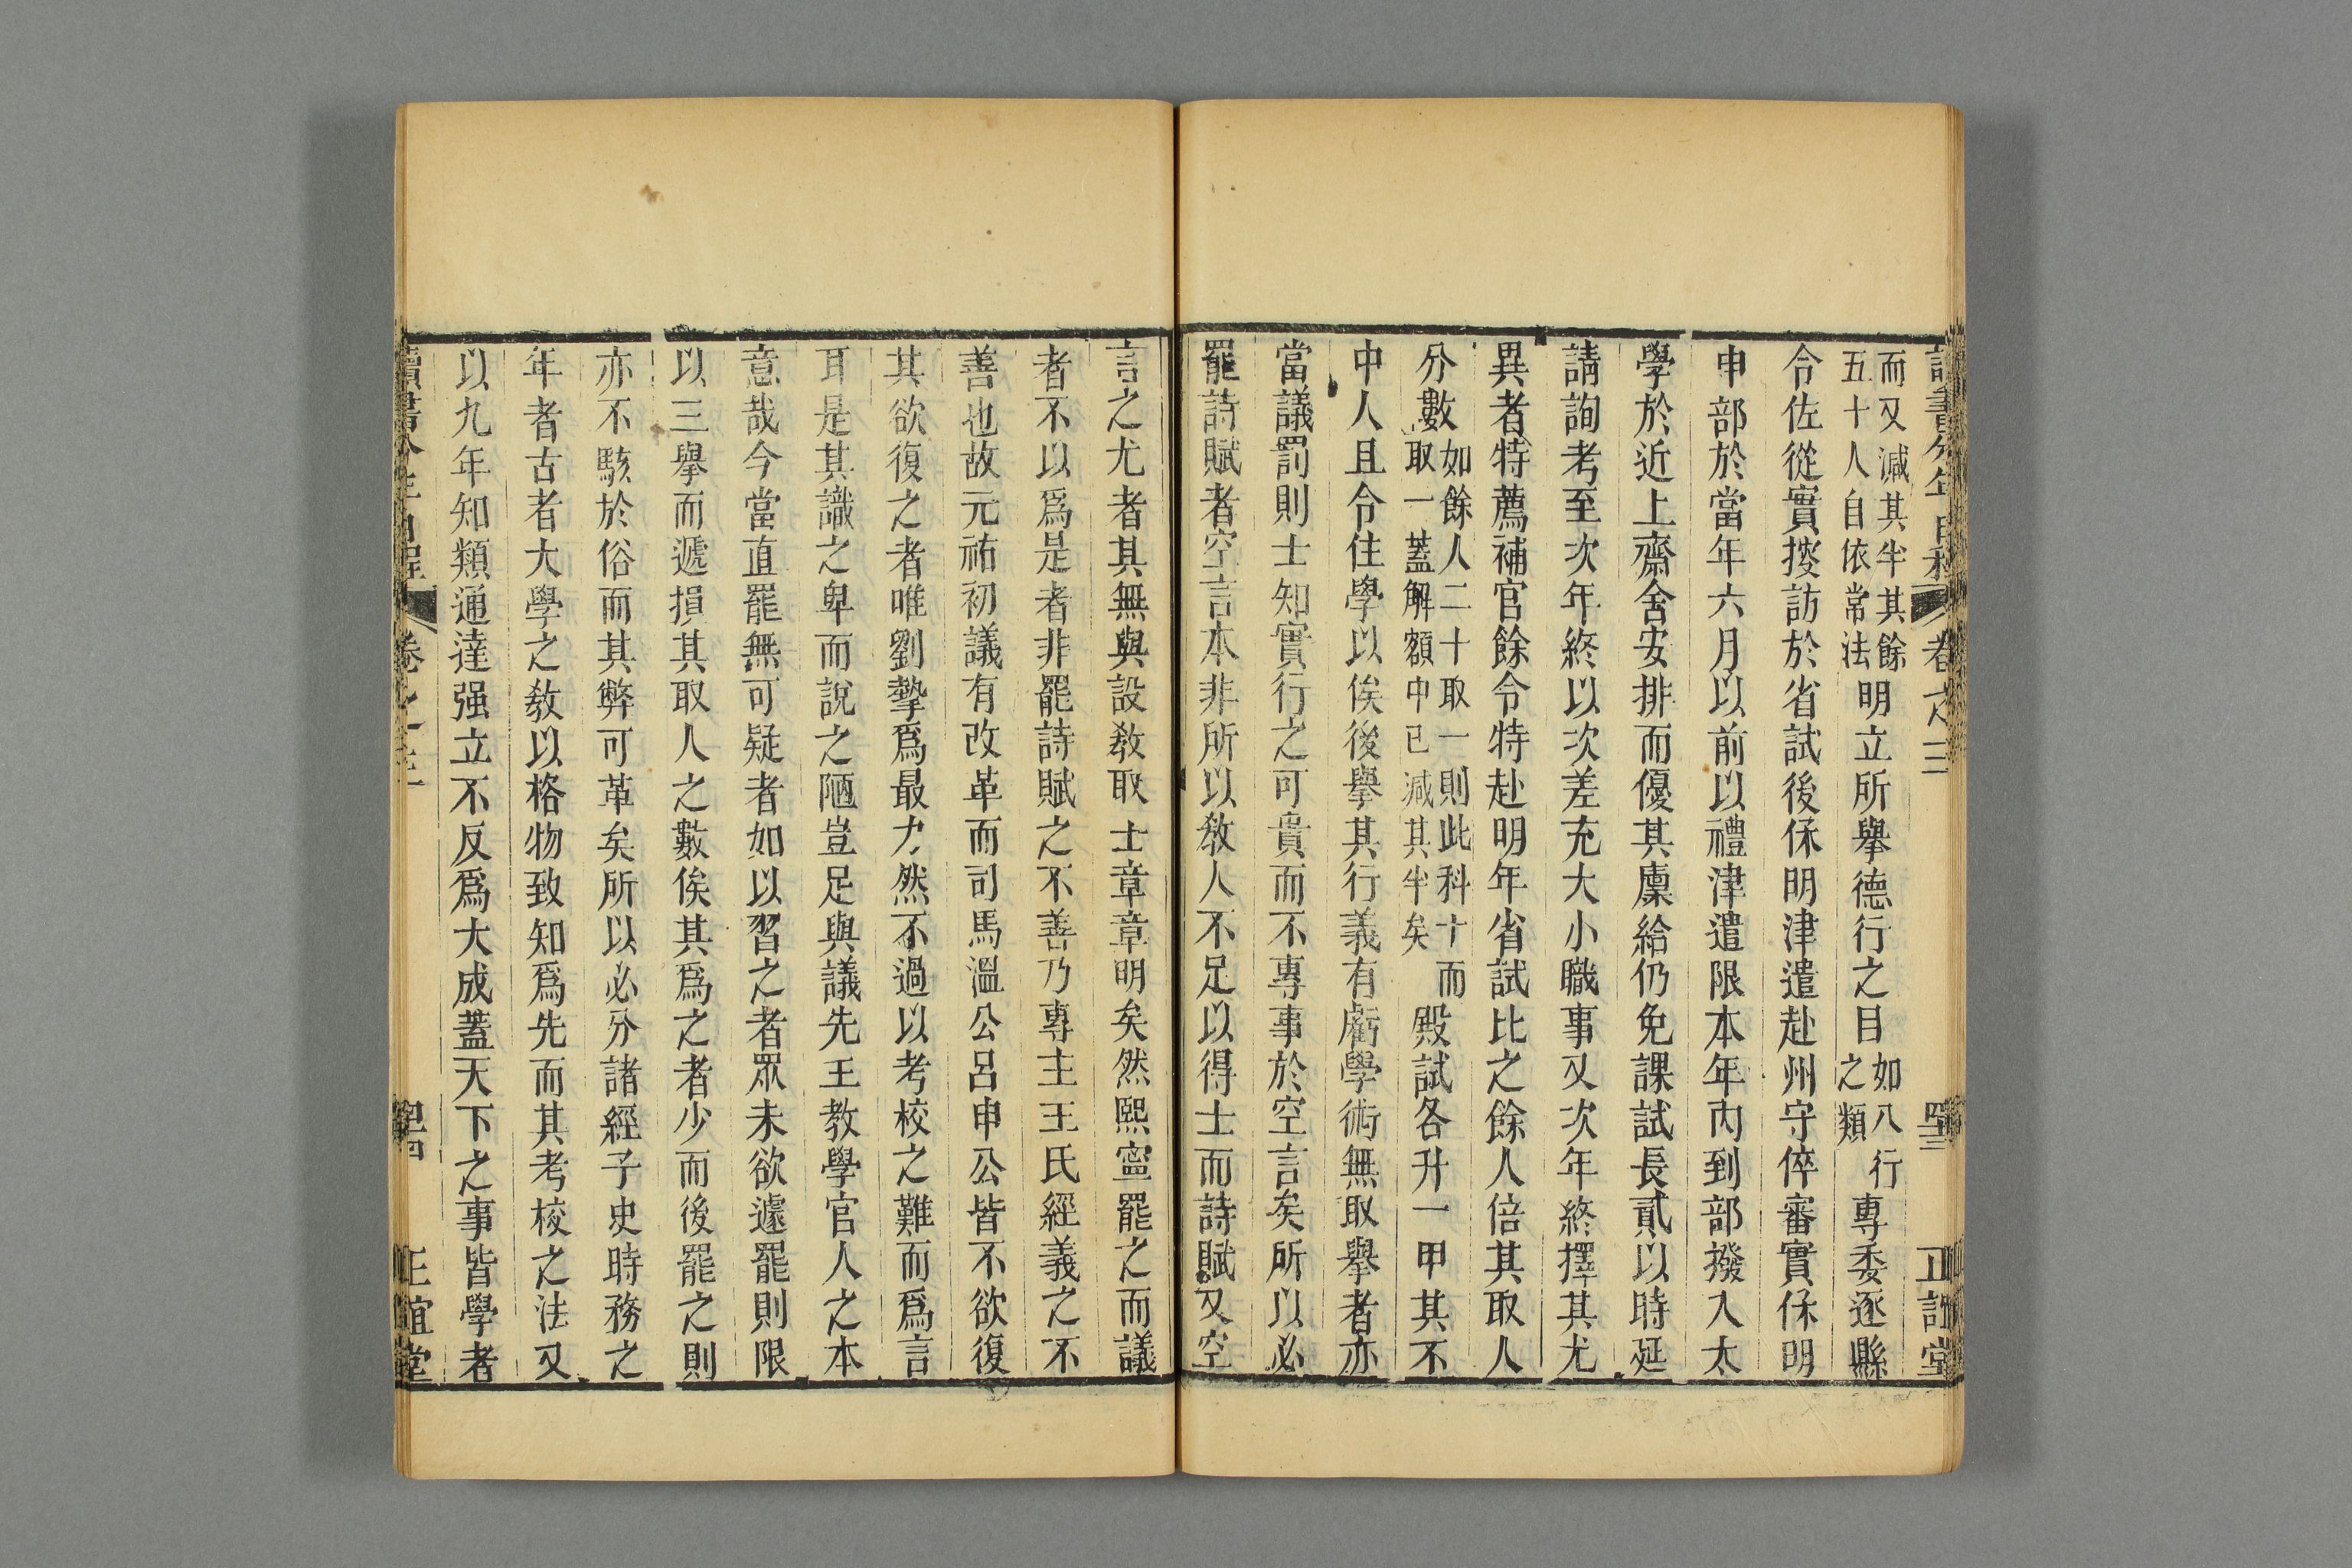 讀書分年日程 卷之三 四三 正誼堂
而又減其半其餘
五十人自依常法
明立所舉德行之目
如八行
之類
專委逐縣
令佐從實搜訪於省試後保明津遣赴州守倅審實保明
申部於當年六月以前以禮津遣限本年內到部撥入太
學於近上齋舍安排而優其廩給仍免課試長貳以時延
請詢考至次年終以次差充大小職事又次年終擇其尤
異者特薦補官餘令特赴明年省試比之餘人倍其取人
分數
如餘人二十取一則此科十而
取一蓋解額中已減其半矣
殿試各升一甲其不
中人且令住學以俟後舉其行義有虧學術無取舉者亦
當議罰則士知實行之可貴而不專事於空言矣所以必
罷詩賦者空言本非所以敎人不足以得士而詩賦又空
言之尤者其無與設敎取士章章明矣然熙寧罷之而議
者不以爲是者非罷詩賦之不善乃專主王氏經義之不
善也故元祐初議有改革而司馬溫公呂申公皆不欲復
其欲復之者唯劉摯爲最力然不過以考校之難而爲言
耳是其識之卑而說之陋豈足與議先王敎學官人之本
意哉今當直罷無可疑者如以習之者眾未欲遽罷則限
以三舉而遞損其取人之數俟其爲之者少而後罷之則
亦不駭於俗而其弊可革矣所以必分諸經子史時務之
年者古者大學之敎以格物致知爲先而其考校之法又
以九年知類通達强立不反爲大成蓋天下之事皆學者
讀書分年日程 卷之三 四四 正誼堂